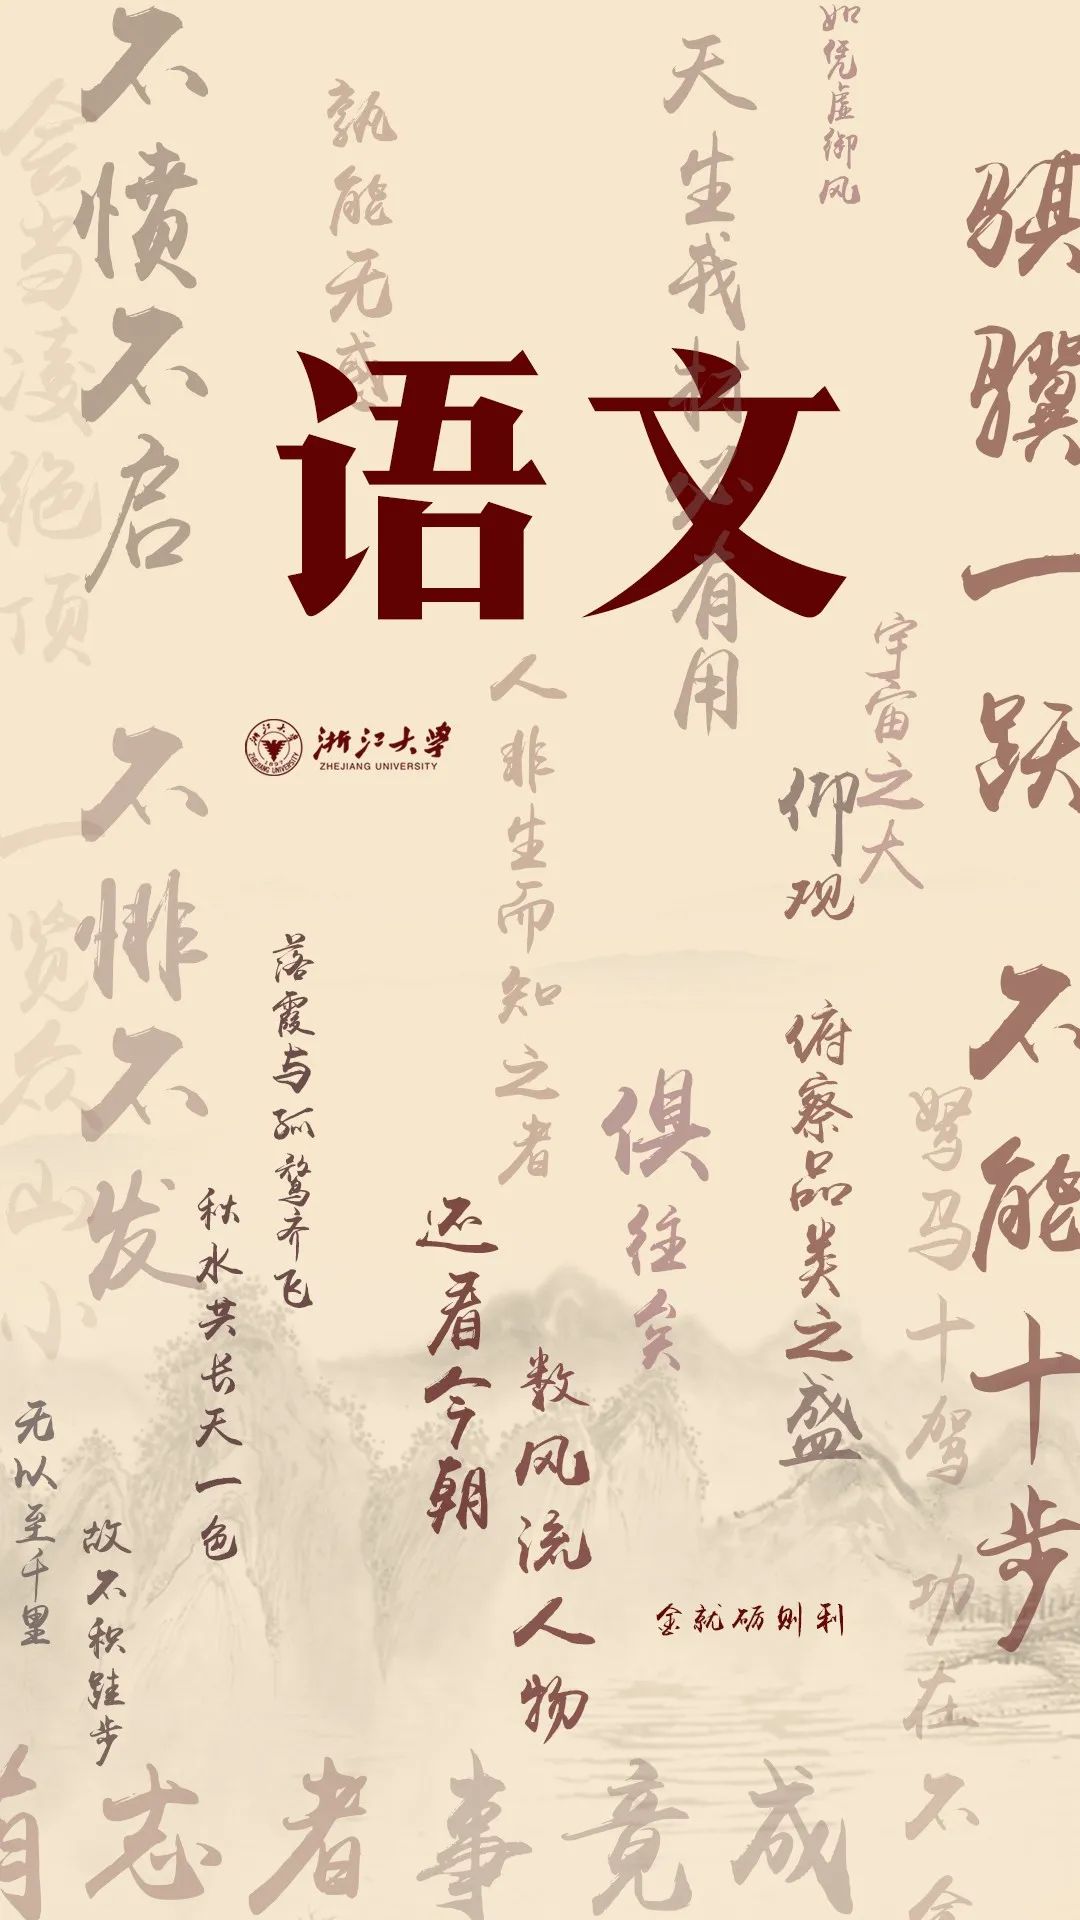 语文
浙江大学
ZHEJIANG UNIVERSITY
会当凌绝顶
一览众山小
不愤不启
不悱不发
孰能无惑
人非生而知之者
天生我材必有用
如凭虚御风
骐骥一跃
不能十步
宇宙之大
仰观
俯察品类之盛
驽马十驾
功在不舍
落霞与孤鹜齐飞
秋水共长天一色
俱往矣
数风流人物
还看今朝
故不积跬步
无以至千里
金就砺则利
有志者事竟成